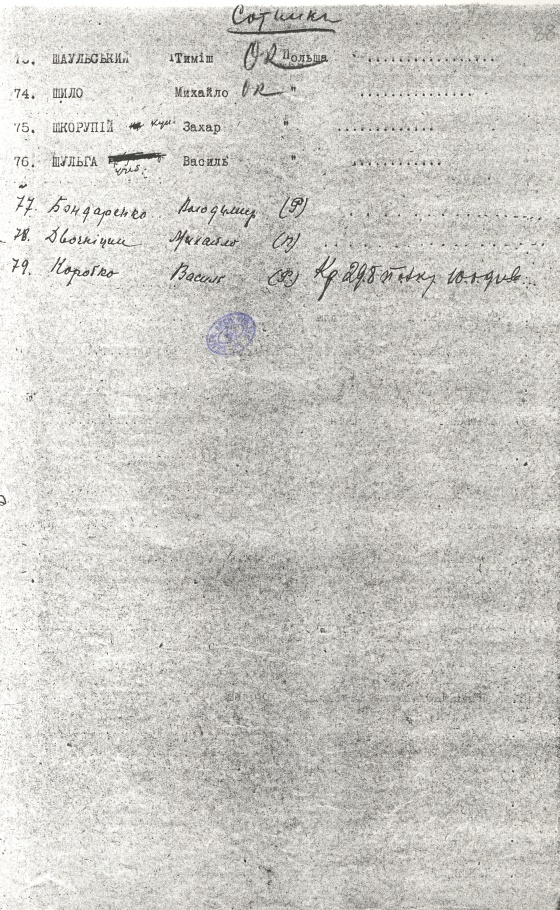 Сотники
ШАУЛЬСЬКИЙ Тиміш ОК Польща ....................
74. ШИЛО Михайло ОК " ..................
75. ШКОРУПІЙ Захар " ...............
76. ШУЛЬГА Василь " ..............
77. Бондаренко Володимир (Р) ....................
78. Михайло (п) ....................
79. Коробко Василь (Р)